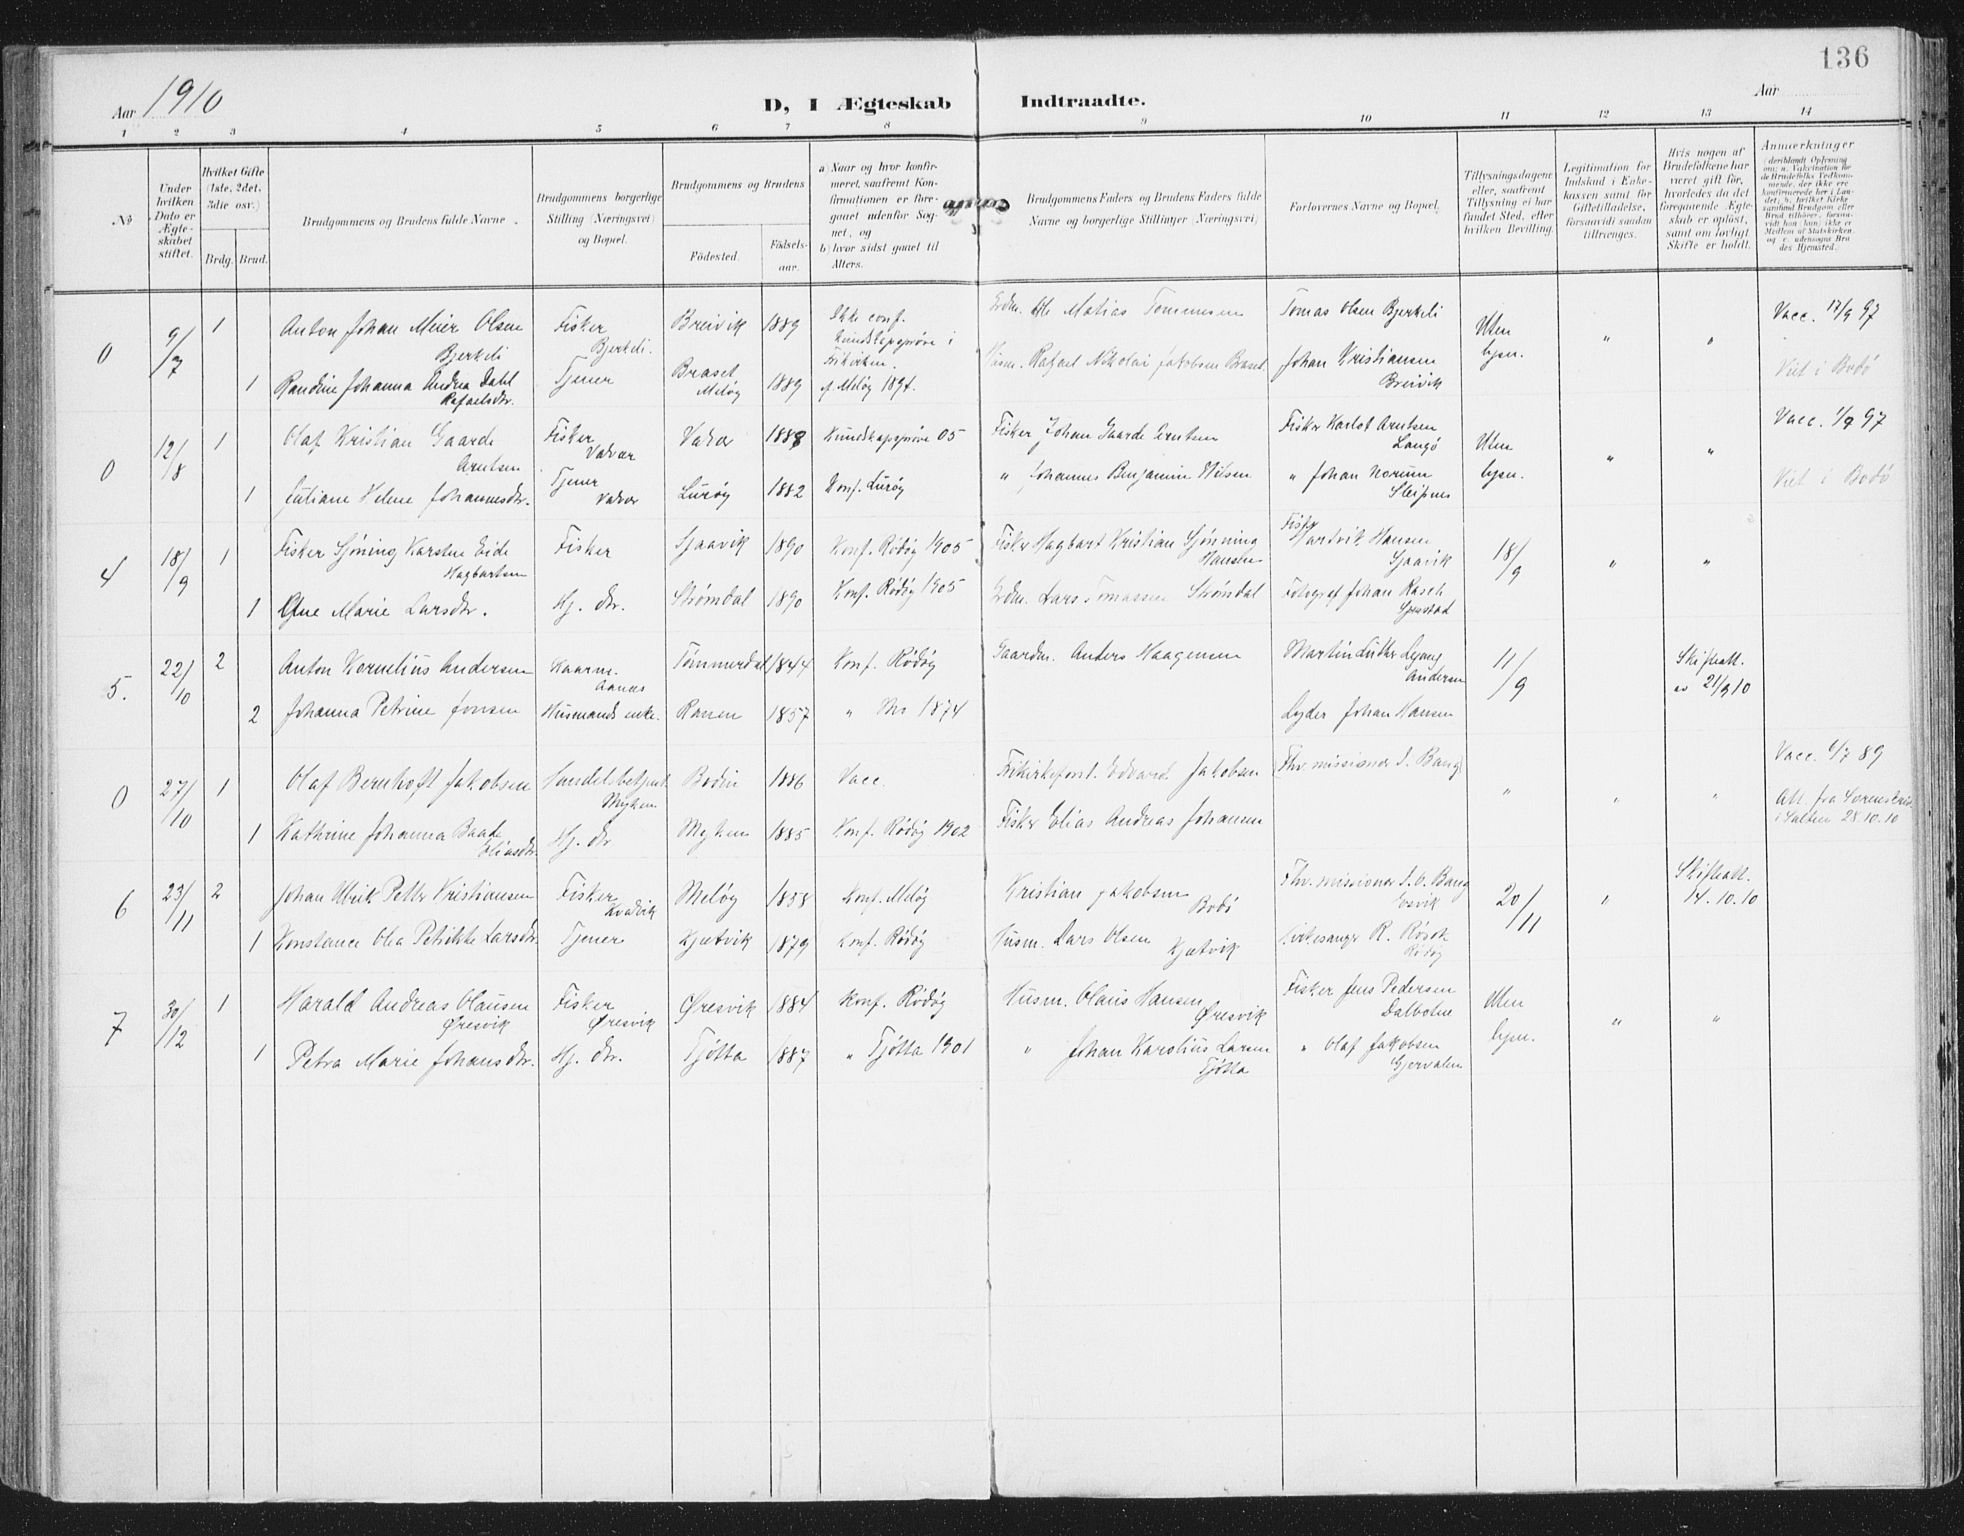 136
Aar 1910
D, I Ægteskab Indtraadte.
Aar
1 2 3 4 5 6 7 8 9 10 11 12 13 14
No
Under hvilken Dato er Ægteskabet stiftet.
Hvilket Gifte (1ste, 2det, 3die osv.)
Brdg. Brud.
Brudgommens og Brudens fulde Navne.
Brudgommens borgerlige Stilling (Næringsvei) og Bopæl.
Brudgommens og Brudens
Födested. Födsels-aar.
a) Naar og hvor konfirmeret, saafremt Konfirmationen er foregaaet udenfor Sognet, og
b) hvor sidst gaaet til Alters.
Brudgommens Faders og Brudens Faders fulde Navne og borgerlige Stillinger (Næringsvei)
Forlovernes Navne og Bopæl.
Tillysningsdagene eller, saafremt Tillysning ei har fundet Sted, efter hvilken Bevilling.
Legitimation for Indskud i Enkekassen samt for Giftetilladelse, forsaavidt saadan tiltrænges.
Hvis nogen af Brudefolkene har været gift för, hvorledes da det foregaaende Ægteskab er oplöst, samt om lovligt Skifte er holdt.
Anmerkninger
0 9/7 1 Anton Johan Meier Olsen Fisker Breivik 1889 Ikke conf. Matias Tommesen Tomas Olsen Bjerkeli Uten " " Vacc. 17/9 97
Bjerkeli Bjerkeli. Kundskapsprøve i lysn.
1 Randine Johanna Andrea Dahl Tjener Braset 1889 Frikirken. Rafael Nikolai Jakobsen Braset Johan Kristiansen Viet i Bodø
Rafaelsdtr. Meløy Meløy 1897. Breivik
0 12/8 1 Olaf Kristian Gaarde Fisker Valvær 1888 Kundskapsprøve 05 Fisker Johan Gaarde Arntsen Fisker Karlot Arntsen Uten " " Vacc. 1/9 97
Arntsen Valvær Langø lysn.
1 Juliane Helene Johannesdtr. Tjener Lurøy 1882 Konf. Lurøy " Johannes Benjamin Nilsen " Johan Norum Viet i Bodø
Valvær Sleipnes
4 18/9 1 Fisker Sjøning Karsten Eide Fisker Sjaavik 1890 Konf. Rødøy 1905 Fisker Hagbart Kristian Sjønning Fisker Hartvik Hansen 18/9 " "
Hagbartsen Hansen Sjaavik
1 Marie Larsdtr. Hj. dtr. Strømdal 1890 Konf. Rødøy 1905 Lars Tomassen Strømdal Fotograf Johan Rasch
5. 22/10 2 Anton Kornelius Andersen Kaarm. Tømmerdal 1844 Konf. Rødøy Gaardm. Anders Haagensen Martin Luther Lyang 11/9 Skifteatt.
Aanes Andersen av 21/9 10
2 Johanna Petrine Jonsen Husmands enke. Ranen 1857 " Mo 1874 Lyder Johan Hansen
0 27/10 1 Olaf Bernhoft Jakobsen Handelsbetjent Bodin 1886 Vacc. Frikirkeforst. Edvard Jakobsen Fhv. missionær S. Bang " " " Vacc. 6/7 89
Myken
1 Kathrine Johanna Baade Hj. dtr Myken 1885 Konf. Rødøy 1902 Fisker Elias Andreas Johansen Att. fra Sorenskriv.
Eliasdtr. i Salten 28.10.10
6 23/11 2 Johan Ulrik Petter Kristiansen Fisker Meløy 1858 Konf. Meløy Kristian Jakobsen Fhv. missionær S. O. Bang 20/11 " Skifteatt.
Kvalvik Bodø Esvik 14.10.10
1 Konstance Olea Petrikke Larsdtr. Tjener Kjætvik 1879 Konf. Rødøy Husm. Lars Olsen Kirkesanger R. Røsok
Kjætvik Rødøy
7 30/12 1 Harald Andreas Olausen Fisker Øresvik 1884 Konf. Rødøy Husm. Olaus Hansen Fisker Jens Pedersen Uten " "
Øresvik Øresvik Øresvik Dalbotn lysn.
1 Petra Marie Johansdtr. Hj. dtr. Tjøtta 1887 " Tjøtta 1901 " Johan Karolius Larsen " Olaf Jakobsen
Tjøtta Gjervalen